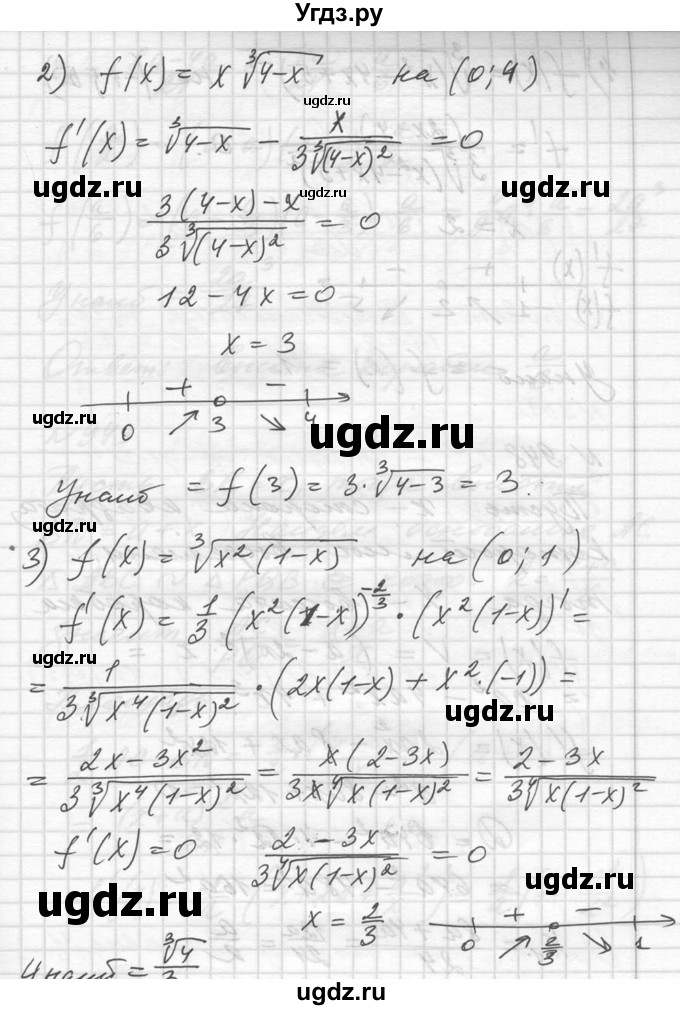 Угдз.ру
2) f(x) = x ∛(4-x) на (0; 4)
ugdz.ru
f'(x) = ∛(4-x) - x/(3∛(4-x)²) = 0
ugdz.ru ugdz.ru
(3(4-x)-x)/(3∛(4-x)²) = 0
ugdz.ru
12-4x=0
x=3
+ -
ugdz.ru
0 ↗ 3 ↘ 4
ugdz.ru
Yнаиб = f(3) = 3·∛(4-3) = 3.
3) f(x) = ∛(x²(1-x)) на (0; 1)
f'(x) = 1/3 (x²(1-x))^(-2/3) · (x²(1-x))' =
ugdz.ru
= 1/(3∛(x⁴(1-x)²)) · (2x(1-x) + x²·(-1)) =
ugdz.ru
= (2x-3x²)/(3∛(x⁴(1-x)²)) = x(2-3x)/(3x∜(x(1-x)²)) = (2-3x)/(3∜(x(1-x)²))
f'(x)=0 (2-3x)/(3∜(x(1-x)²)) = 0
ugdz.ru ugdz.ru
x = 2/3
+ -
0 ↗ 2/3 ↘ 1
Yнаиб = ∛4/3
ugdz.ru